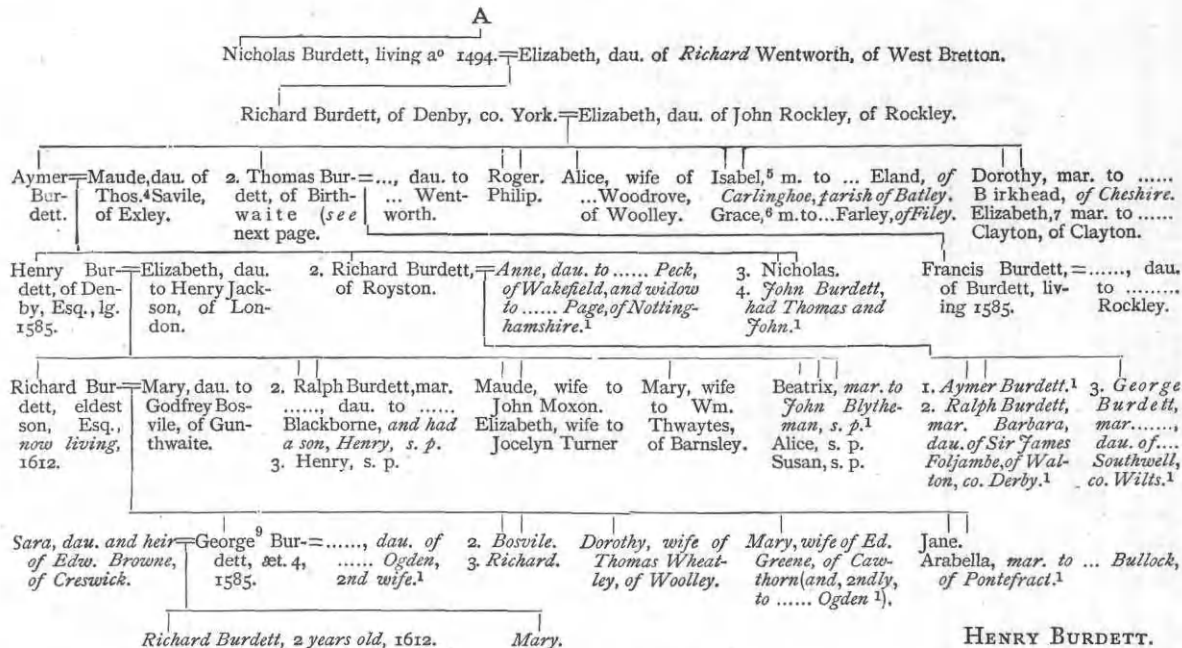 A
Nicholas Burdett, living aº 1494.=Elizabeth, dau. of Richard Wentworth, of West Bretton.
Richard Burdett, of Denby, co. York.=Elizabeth, dau. of John Rockley, of Rockley.
Aymer=
Bur-
dett.
Maude, dau. of
Thos.⁴ Savile,
of Exley.
2. Thomas Bur-=
dett, of Birth-
waite (see
next page.
..., dau. to
... Went-
worth.
Roger.
Philip.
Alice, wife of
...Woodrove,
of Woolley.
Isabel,⁵ m. to ... Eland, of
Carlinghoe, parish of Batley.
Grace,⁶ m. to...Farley, of Filey.
Dorothy, mar. to ......
B irkhead, of Cheshire.
Elizabeth,⁷ mar. to ......
Clayton, of Clayton.
Henry Bur-=
dett, of Den-
by, Esq., lg.
1585.
Elizabeth, dau.
to Henry Jack-
son, of Lon-
don.
2. Richard Burdett,=
of Royston.
Anne, dau. to ...... Peck,
of Wakefield, and widow
to ...... Page, of Notting-
hamshire.¹
3. Nicholas.
4. John Burdett,
had Thomas and
John.¹
Francis Burdett,=
of Burdett, liv-
ing 1585.
......, dau.
to .........
Rockley.
Richard Bur-=
dett, eldest
son, Esq.,
now living,
1612.
Mary, dau. to
Godfrey Bos-
vile, of Gun-
thwaite.
2. Ralph Burdett, mar.
......, dau. to ......
Blackborne, and had
a son, Henry, s. p.
3. Henry, s. p.
Maude, wife to
John Moxon.
Elizabeth, wife to
Jocelyn Turner
Mary, wife
to Wm.
Thwaytes,
of Barnsley.
Beatrix, mar. to
John Blythe-
man, s. p.¹
Alice, s. p.
Susan, s. p.
1. Aymer Burdett.¹
2. Ralph Burdett,
mar. Barbara,
dau. of Sir James
Foljambe, of Wal-
ton, co. Derby.¹
3. George
Burdett,
mar.......,
dau. of....
Southwell,
co. Wilts.¹
Sara, dau. and heir=
of Edw. Browne,
of Creswick.
George⁹ Bur-=
dett, æt. 4,
1585.
......, dau. of
...... Ogden,
2nd wife.¹
2. Bosvile.
3. Richard.
Dorothy, wife of
Thomas Wheat-
ley, of Woolley.
Mary, wife of Ed.
Greene, of Caw-
thorn (and, 2ndly,
to ...... Ogden ¹).
Jane.
Arabella, mar. to ... Bullock,
of Pontefract.¹
Richard Burdett, 2 years old, 1612.
Mary.
HENRY BURDETT.